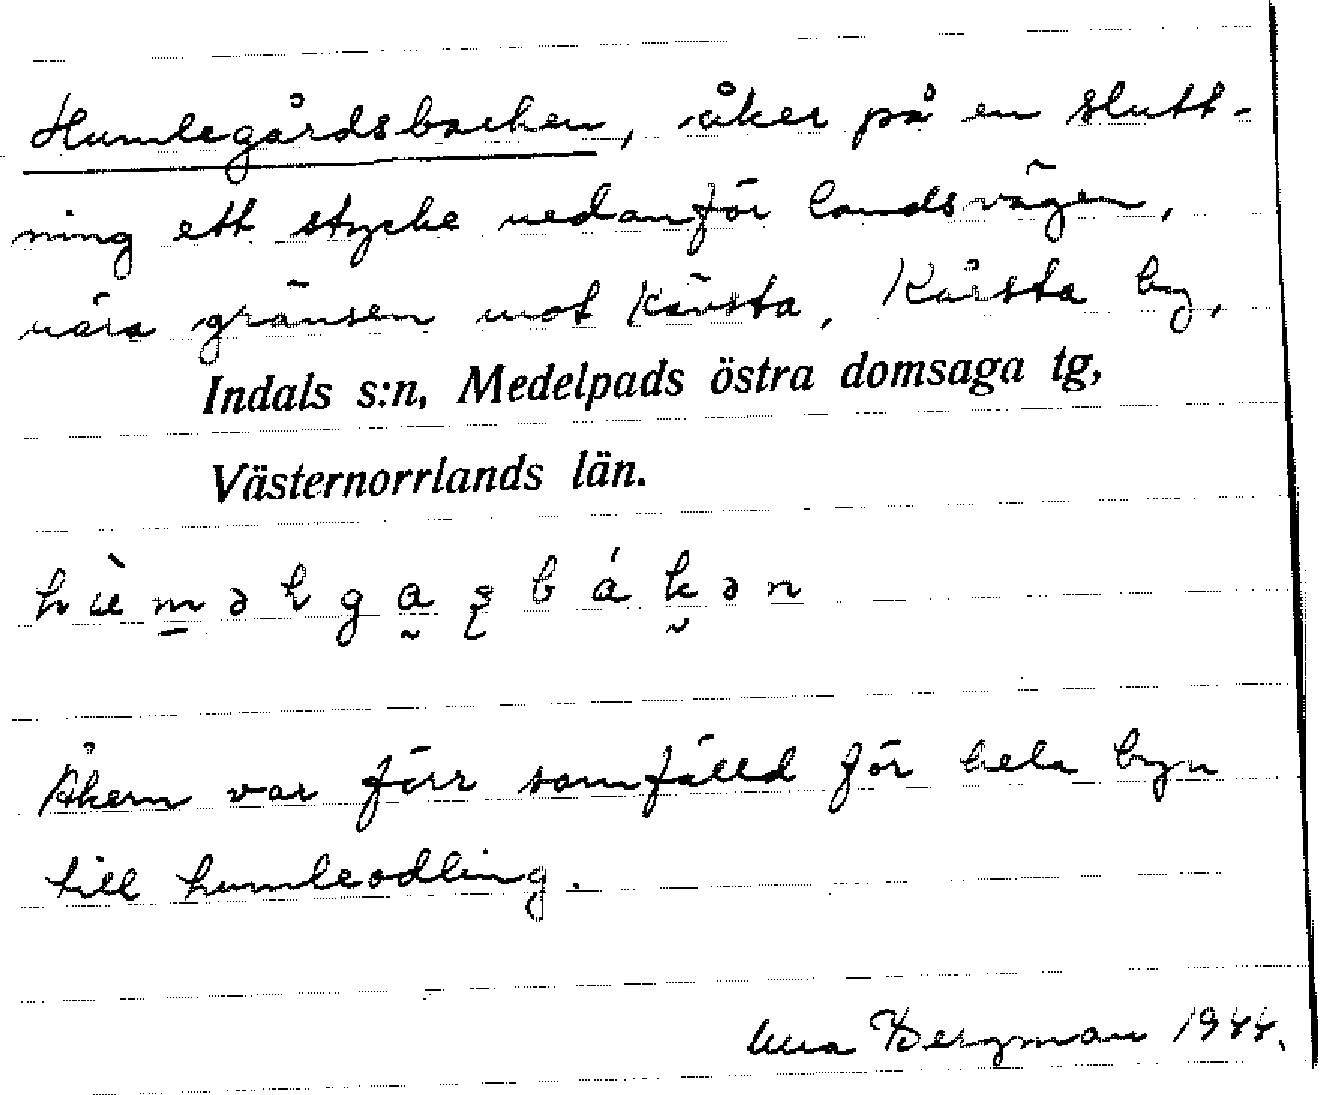 Humlegårdsbacken, åker på en slutt-
ning ett stycke nedanför landsvägen,
nära gränsen mot Kävsta, Kårsta by,
Indals s:n, Medelpads östra domsaga tg,
Västernorrlands län.
Åkern var förr samfälld för hela byn
till humleodling.
Bergman 1944.